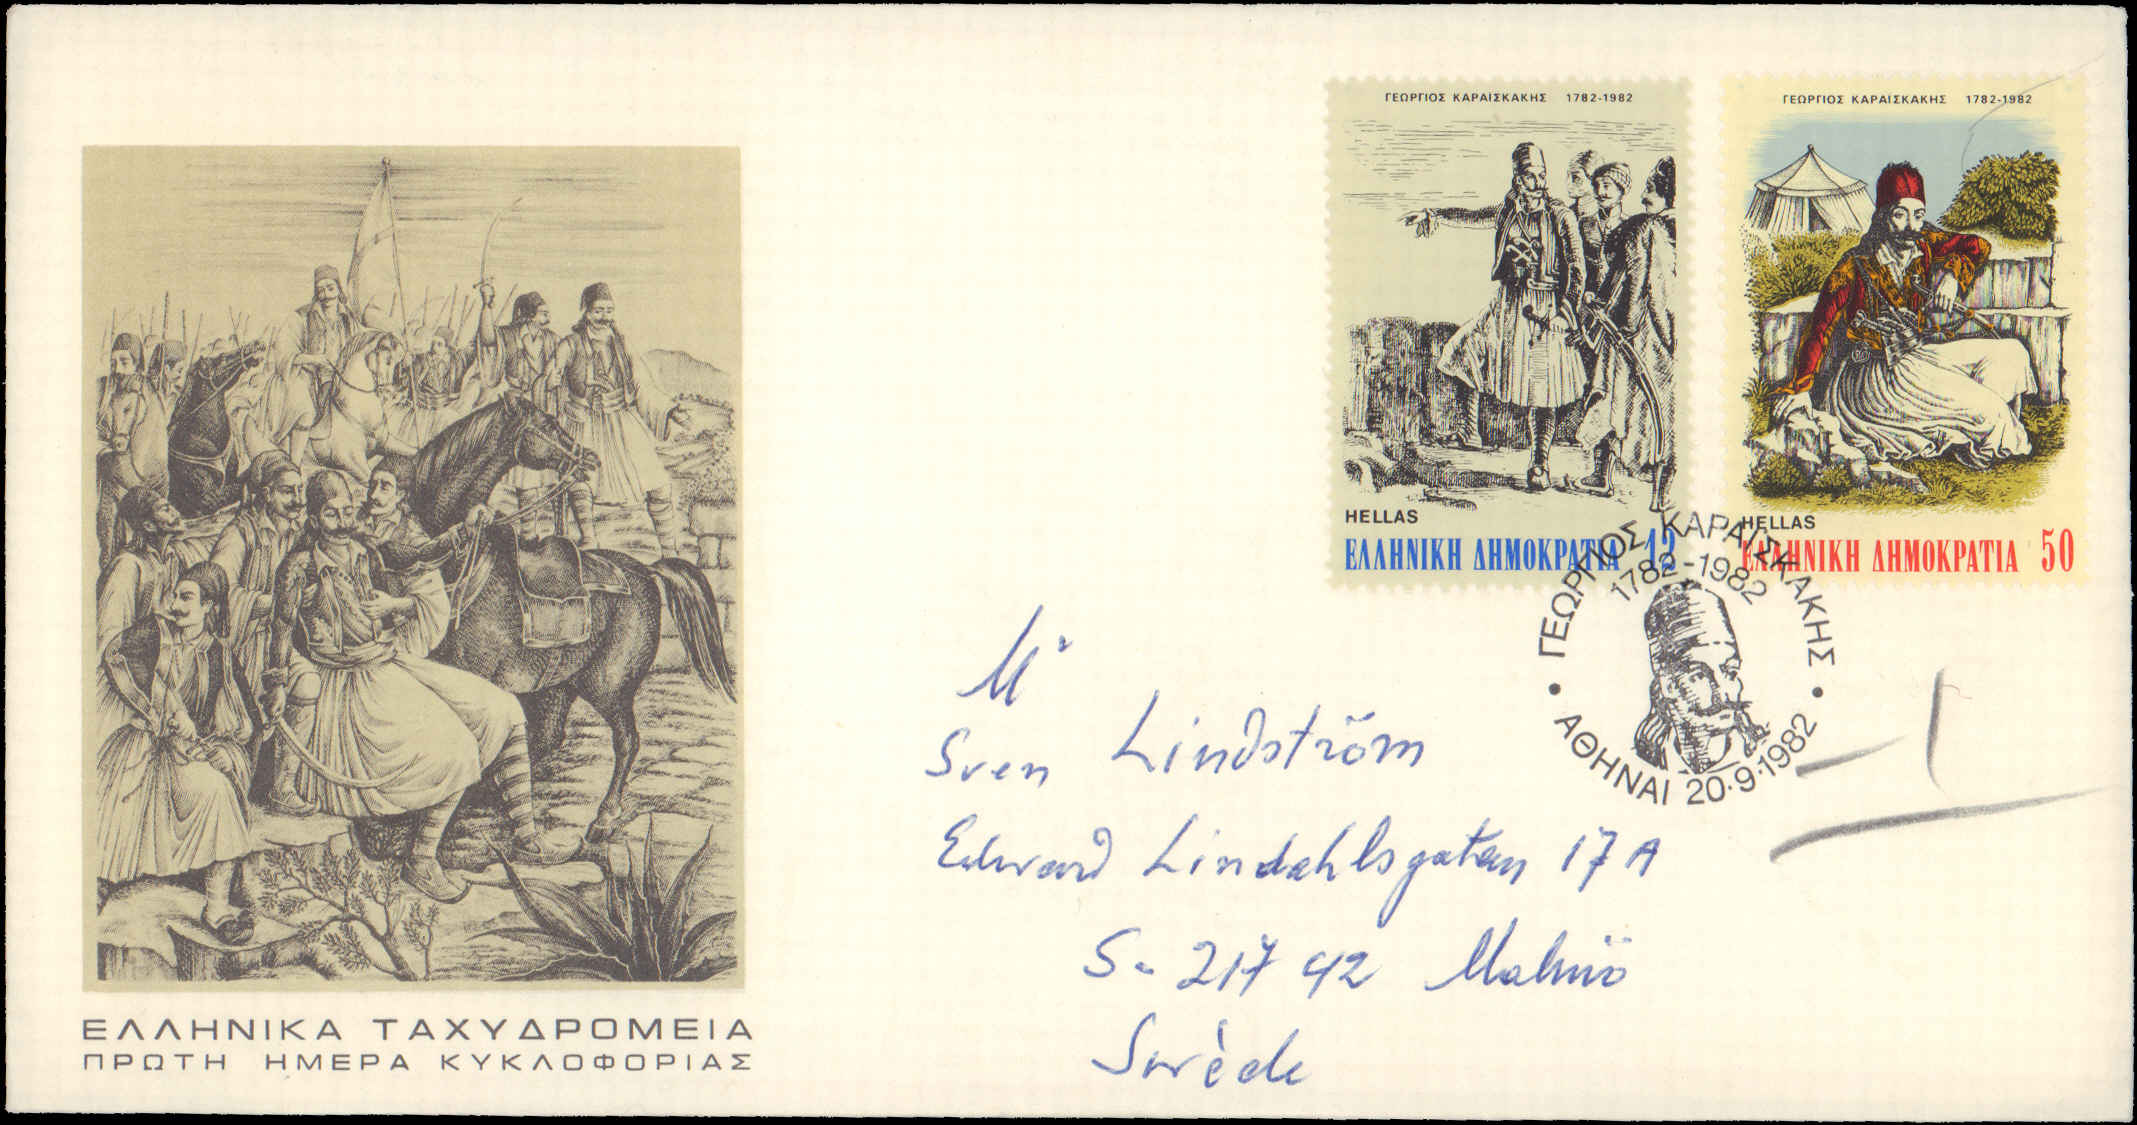 ΓΕΩΡΓΙΟΣ ΚΑΡΑΪΣΚΑΚΗΣ 1782-1982
HELLAS
ΕΛΛΗΝΙΚΗ ΔΗΜΟΚΡΑΤΙΑ 12
ΓΕΩΡΓΙΟΣ ΚΑΡΑΪΣΚΑΚΗΣ 1782-1982
HELLAS
ΕΛΛΗΝΙΚΗ ΔΗΜΟΚΡΑΤΙΑ 50
ΓΕΩΡΓΙΟΣ ΚΑΡΑΪΣΚΑΚΗΣ
1782-1982
ΑΘΗΝΑΙ 20·9·1982
Mr
Sven Lindström
Edward Lindahlsgatan 17A
S- 217 42 Malmö
Suède
ΕΛΛΗΝΙΚΑ ΤΑΧΥΔΡΟΜΕΙΑ
ΠΡΩΤΗ ΗΜΕΡΑ ΚΥΚΛΟΦΟΡΙΑΣ